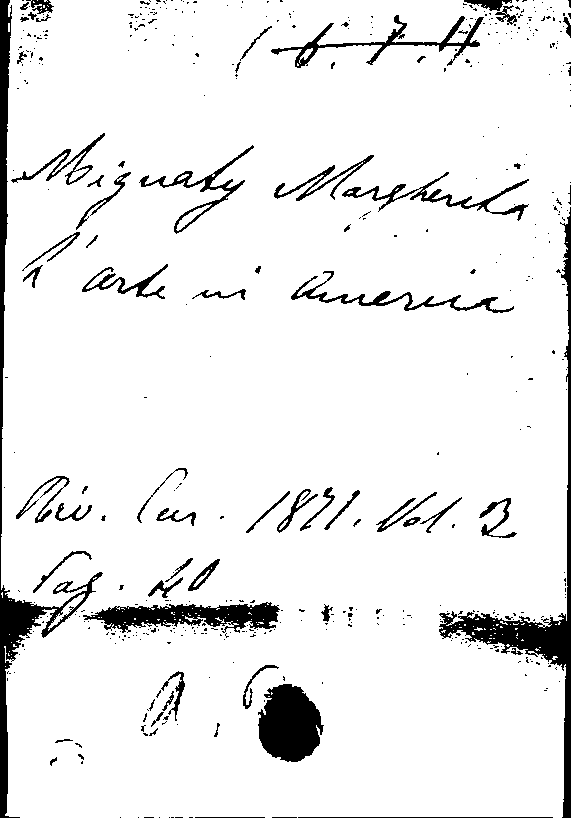 6.7.4
Mignaty Margherita
L'arte in America
Riv. Eur. 1871. Vol. 3
Pag. 40
A.